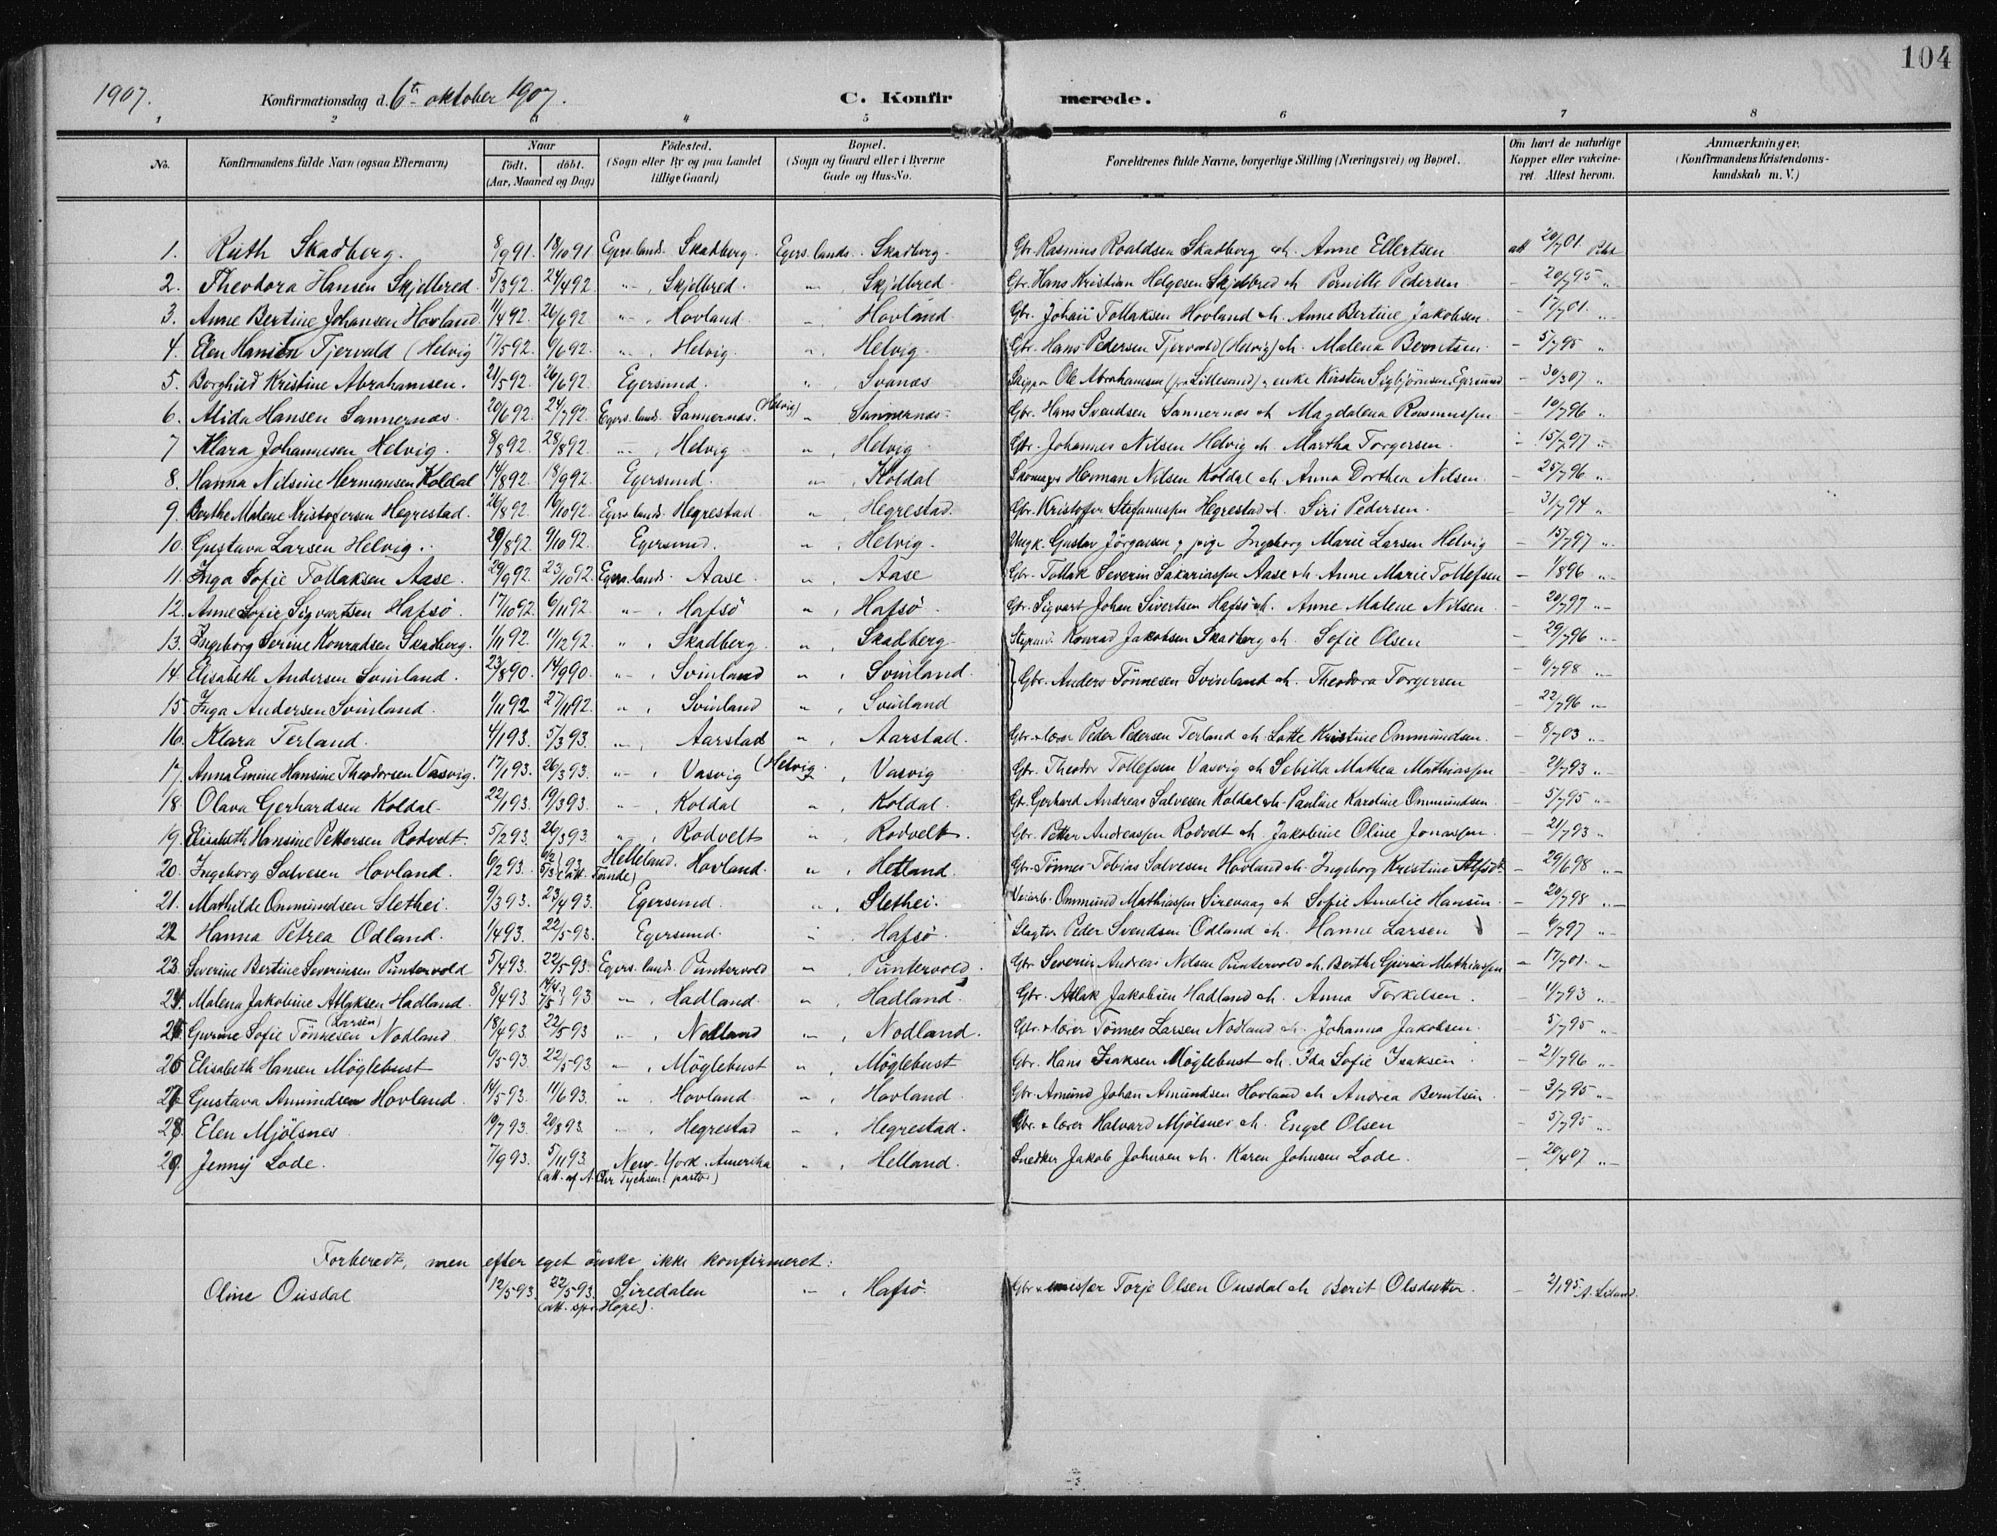 104
1907. Konfirmationsdag d. 6te oktober 1907. C. Konfirmerede.
1 2 3 4 5 6 7 8
No. Konfirmandens fulde Navn (ogsaa Efternavn) Naar født, døbt. (Aar, Maaned og Dag) Fødested. (Sogn eller By og paa Landet tillige Gaard) Bopæl. (Sogn og Gaard eller i Byerne Gade og Hus-No. Forældrenes fulde Navne, borgerlige Stilling (Næringsvei) og Bopæl. Om havt de naturlige Kopper eller vakcineret. Attest herom. Anmærkninger. (Konfirmandens Kristendomskundskab m. V.)
1. Ruth Skadberg. 8/9 91. 18/10 91 Egers. lands. Skadberg. Egers. lands. Skadberg. Gbr. Rasmus Roaldsen Skadberg & h. Anne Ellertsen att 20/7 01.
2. Theodora Hansen Skjelbred. 5/3 92. 24/4 92. -"- Skjelbred. " Skjelbred Gbr. Hans Kristian Helgesen Skjelbred & h. Pernille Pedersen - 20/7 95 "
3. Anne Bertine Johansen Hovland. 11/4 92. 26/6 92. -"- Hovland. " Hovland. Gbr. Johan Tollaksen Hovland & h. Anne Bertine Jakobsen. - 17/7 01. "
4. Elen Hansen Tjervald (Helvig 17/5 92. 6/6 92. -"- Helvig. " Helvig. Gbr. Hans Pedersen Tjervald (Helvig) & h. Malena Berntsen. - 5/7 95 "
5. Borghild Kristine Abrahamsen. 21/5 92. 26/6 92. Egersund. " Svanæs Skipper Ole Abrahamsen (fra Lillesand) & enke Kirsten Sigbjørnsen, Egersund - 30/3 07 "
6. Alida Hansen Sannernæs. 20/6 92. 24/7 92. Egers. lands. Sannernæs. (Helvig) " Sannernæs. Gbr. Hans Svendsen Sannernæs & h. Magdalena Rasmussen. - 10/7 96 "
7 Klara Johannesen Helvig. 8/8 92. 28/8 92. -"- Helvig " Helvig Gbr. Johannes Nilsen Helvig & h. Martha Torgersen. - 15/7 97 "
8. Hanna Nilsine Hermansen Koldal 14/8 92. 18/9 92. Egersund. " Koldal Skomager Herman Nilsen Koldal & h. Anna Dorthea Nilsen. - 25/7 96 "
9. Berthe Malene Kristoffersen Hegrestad. 26/8 92. 16/10 92. Egers. lands. Hegrestad. " Hegrestad. Gbr. Kristoffer Stefanussen Hegrestad & h. Siri Pedersen. - 31/7 94 "
10. Gustava Larsen Helvig. 29/8 92. 9/10 92. Egersund. " Helvig. Ungk. Gustav Jörgensen & pige Ingeborg Marie Larsen Helvig - 15/7 97 "
11. Inga Sofie Tollaksen Aase. 29/9 92. 23/10 92. Egers. lands. Aase. " Aase Gbr. Tollak Severin Sakariassen Aase & h. Anne Marie Tollefsen - 1/8 96 "
12. Anne Sofie Sigvartsen Hafsö. 17/10 92. 6/11 92. -"- Hafsö " Hafsö. Gbr. Sigvart Johan Sivertsen Hafsö & h. Anne Malene Nilsen. - 20/7 97 "
13. Ingeborg Serine Konradsen Skadberg. 1/11 92. 11/12 92. " Skadberg " Skadberg. Konrad Jakobsen Skadberg & h. Sofie Olsen - 29/7 96 "
14. Elisabeth Andersen Svinland. 23/8 90. 14/9 90. -"- Svinland " Svinland. } Gbr. Anders Tönnesen Svinland & h. Theodora Torgersen - 6/7 98 "
15. Inga Andersen Svinland. 1/11 92 27/11 92. " Svinland " Svinland - 22/7 96 "
16. Klara Terland. 4/1 93. 5/3 93. -"- Aarstad " Aarstad. Gbr. & lærer Peder Pedersen Terland & h. Lotte Kristine Ommundsen. - 8/7 03 "
17. Anna Emine Hansine Theodorsen Vasvig. 17/1 93. 26/3 93. -"- Vasvig (Helvig " Vasvig Gbr. Theodor Tollefsen Vasvig & h. Sebilla Mathea Mathiassen - 21/7 93 "
18. Olava Gerhardsen Koldal. 22/1 93. 19/3 93. -"- Koldal " Koldal. Gbr. Gerhard Andreas Salvesen Koldal & h. Pauline Karoline Ommundsen. - 5/7 95 "
19. Elisabeth Hansine Pettersen Rodvelt. 5/2 93. 26/3 93. " Rodvelt " Rodvelt. Gbr. Petter Andreassen Rodvelt & h. Jakobine Oline Jonassen. - 21/7 93 "
20. Ingeborg Salvesen Hovland. 6/2 93. 6/2 5/3 } 93. (att. Tonde) Helleland. Hovland. " Hetland. Gbr. Tönnes Tobias Salvesen Hovland & h. Ingeborg Kristine - 29/6 98 "
21. Mathilde Ommundsen Slethei. 9/3 93. 23/4 93. Egersund. " Slethei. Veiarb. Ommund Mathiassen Sirevaag & h. Sofie Amalie Hansen. - 20/7 98 "
22 Hanna Petrea Odland. 1/4 93. 22/5 93. Egersund. " Hafsö. Slagter Peder Svendsen Odland & h. Hanne Larsen - 6/7 97 "
23. Severine Bertine Severinsen Puntervold 5/4 93. 22/5 93. Egers. lands. Puntervold " Puntervold. Gbr. Severin Andreas Nilsen Puntervold & h. Berthe Gurine Mathiassen - 17/7 01. "
24. Malena Jakobine Atlaksen Hadland. 8/4 93. 14/4 7/5 } 93 " Hadland. " Hadland. Gbr. Atlak Jakobsen Hadland & h. Anna Torkelsen. - 11/7 93 "
25. Gurine Sofie Tönnesen (Larsen) Nodland. 18/4 93. 22/5 93 " Nodland " Nodland. Gbr. & lærer Tönnes Larsen Nodland & h. Johanna Jakobsen. - 5/7 95 "
26 Elisabeth Hansen Möglebust 9/5 93. 22/5 93 -"- Möglebust " Möglebust Gbr. Hans Isaksen Möglebust & h. Ida Sofie Isaksen - 21/7 96 "
27. Gustava Amundsen Hovland. 14/5 93. 11/6 93. " Hovland. " Hovland. Gbr. Amund Johan Amundsen Hovland & h. Andrea Berntsen. - 3/7 95 "
28. Elen Mjölsnes. 19/7 93. 20/8 93. -"- Hegrestad " Hegrestad. Gbr. & lærer Halvard Mjölsnes & h. Engel Olsen - 5/7 95 "
29. Jenny Lode. 7/9 93. 5/11 93. New-York. Amerika " Helland. Snedker Jakob Johnsen & h. Karen Johnsen Lode. - 20/4 07 "
(att. af N. Chr Tychsen. pastor)
Forberedt, men efter eget önske ikke konfirmeret:
Oline Ousdal 12/5 93. 22/5 93. Siredalen " Hafsö. Gbr. & Torje Olsen Ousdal & h. Berit Olsdatter. - 2/1 95